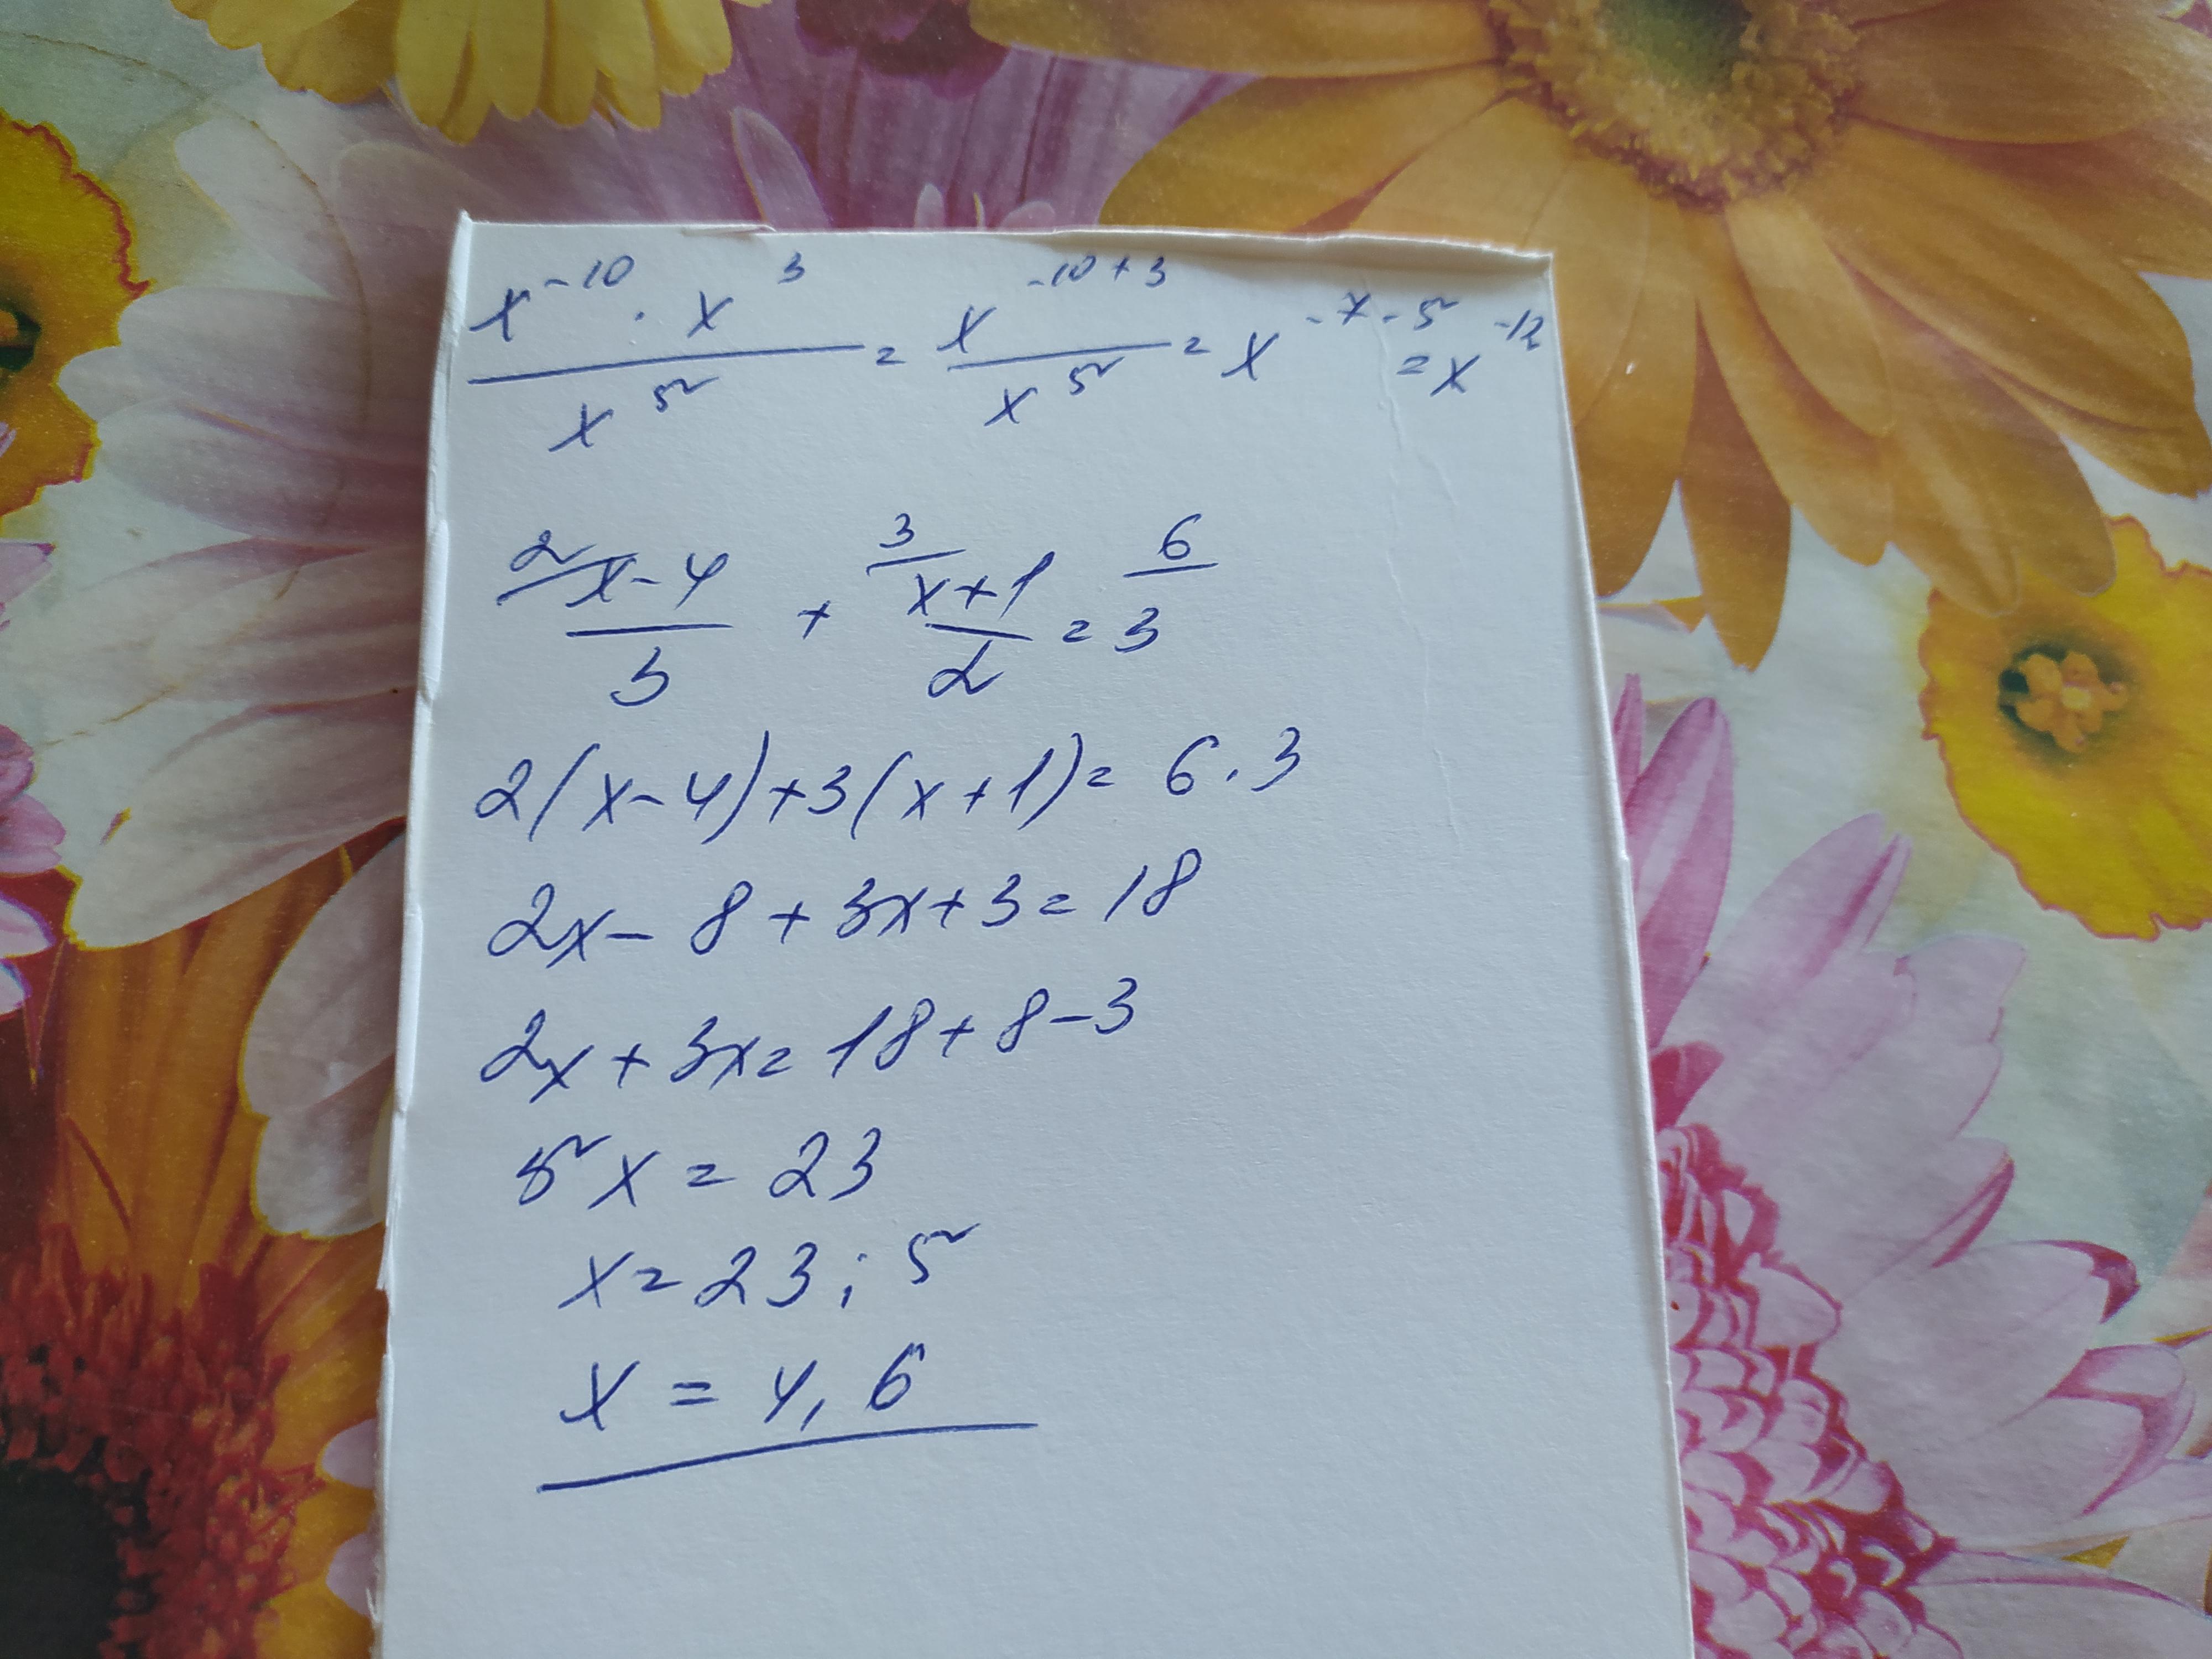 x^{-10} · x^{3} / x^{5} = x^{-10+3} / x^{5} = x^{-7-5} = x^{-12}
^{2/} x-4 / 3 + ^{3/} x+1 / 2 = ^{6/} 3
2(x-4)+3(x+1)= 6·3
2x-8+3x+3=18
2x+3x=18+8-3
5x=23
x=23:5
x=4,6